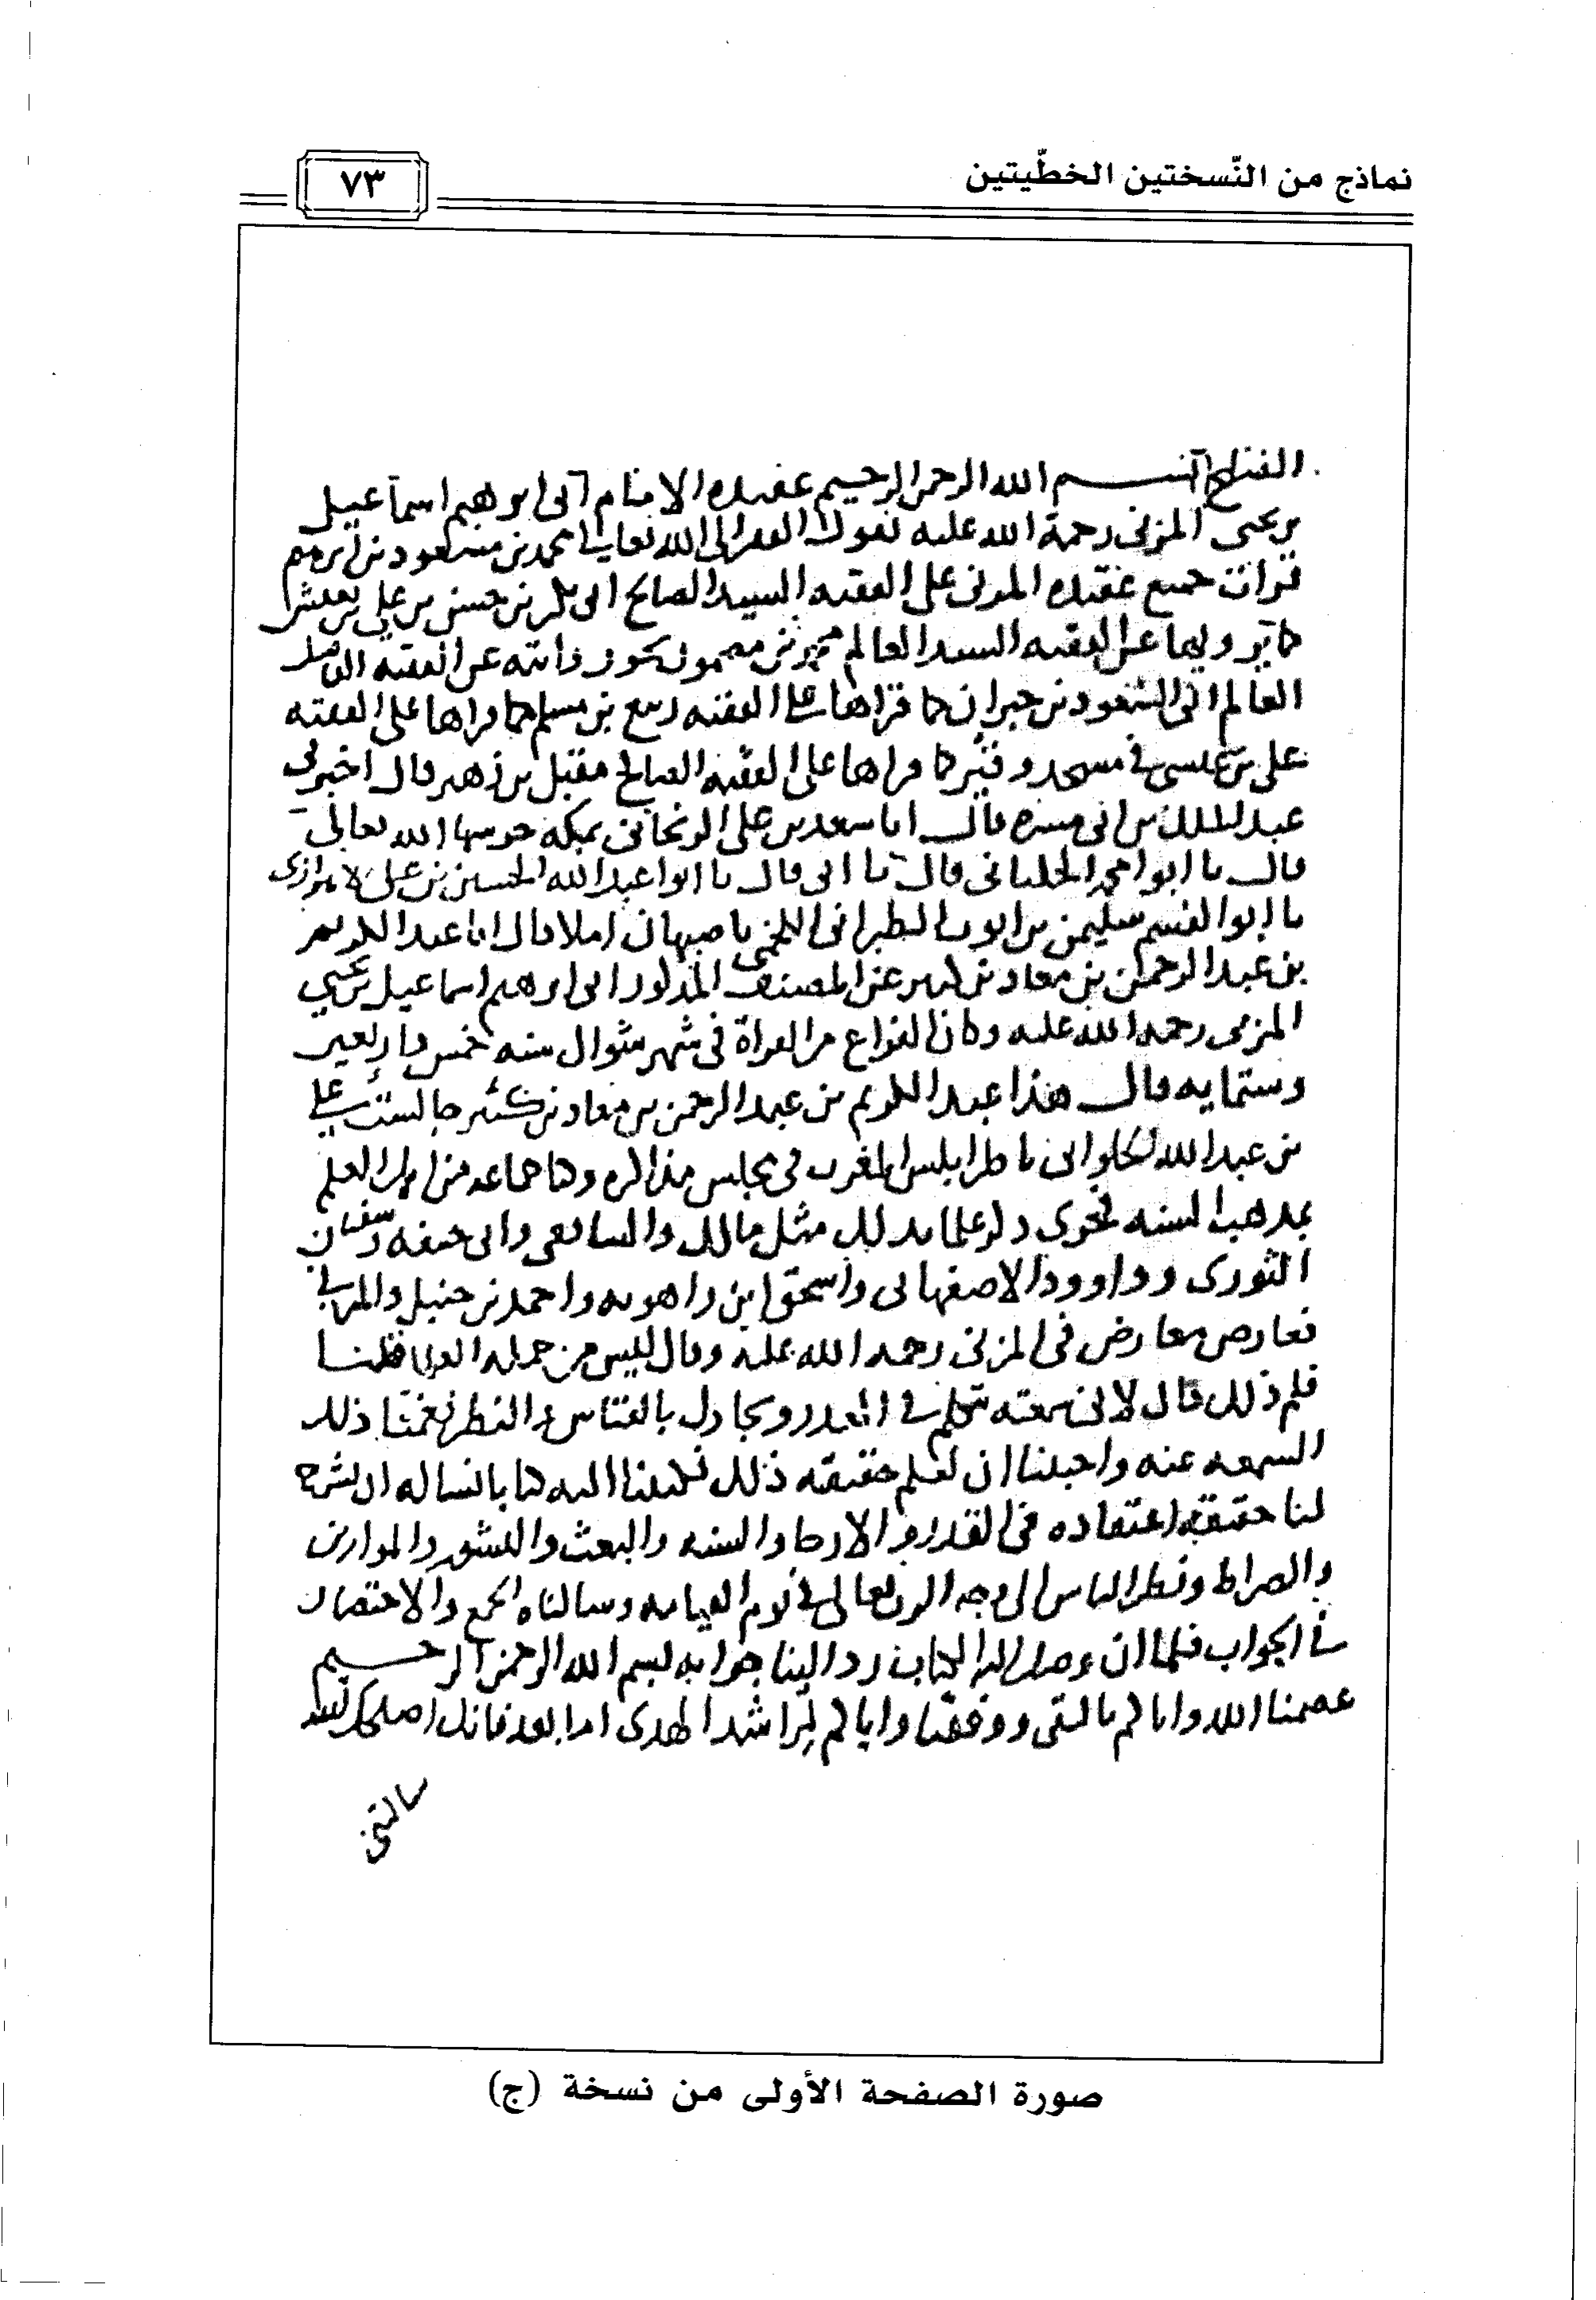 نماذج من النّسختين الخطّيتين
٧٣
بسم الله الرحمن الرحيم عقيده الامام ابى ابرهيم اسماعيل
بن يحيى المزنى رحمة الله عليه يقول الفقير الى الله تعالى محمد بن مسعود بن ابرهيم
قرات جميع عقيده المزنى على الفقيه السيد الصالح ابى بكر بن حسن بن على بن
كما يرويها عن الفقيه السيد العالم محمد بن عن الفقيه الفاضل
العالم ابى السعود بن جبران كما قراها على الفقيه ربيع بن مسلم كما قراها على الفقيه
على بن عيسى فى مسجد كما قراها على الفقيه الصالح مقبل بن زهير قال اخبرنى
عبد الملك بن ابى ميسره قال انا سعد بن على الزنجانى بمكه حرسها الله تعالى
قال نا ابو قال نا ابى قال نا ابو عبد الله الحسين بن على
نا ابو القسم سليمن بن ايوب الطبرانى اللخمى باصبهان املا قال انا عبد الكريم
بن عبد الرحمن بن معاذ بن كثير عن المصنف المذكور ابى ابرهيم اسماعيل بن يحيى
المزنى رحمه الله عليه وكان الفراغ من القراة فى شهر شوال سنه خمس واربعين
وستمايه قال هذا عبد الكريم بن عبد الرحمن بن معاذ بن كثير جالست على
بن عبد الله الحلوانى باطرابلس المغرب فى مجلس مذاكره وكنا جماعه من اهل العلم
بمذهب السنه فجرى ذكر علما بذلك مثل مالك والشافعى وابى حنيفه وسفيان
الثورى وداوود الاصفهانى واسحق ابن راهويه واحمد بن حنبل والمزنى
فعارض معارض فى المزنى رحمه الله عليه وقال ليس من جمله العلما قلنا
فلم ذلك قال لانى سمعته تتكلم فى القدر ويجادل بالقياس والنظر فغمنا ذلك
السمعه عنه واحببنا ان نعلم حقيقه ذلك فكتبنا اليه كتابا نساله ان يشرح
لنا حقيقه اعتقاده فى القدر والارجا والسنه والبعث والنشور والموازين
والصراط ونظر الناس الى وجه الرب تعالى فى يوم القيامه وسالناه الجمع والاختصار
فى الجواب فلما ان وصل اليه الكتاب رد الينا جوابه بسم الله الرحمن الرحيم
عصمنا الله واياكم بالتقى ووفقنا واياكم لمراشد الهدى اما بعد فانك اصلحك الله
سالتنى
صورة الصفحة الأولى من نسخة (ج)